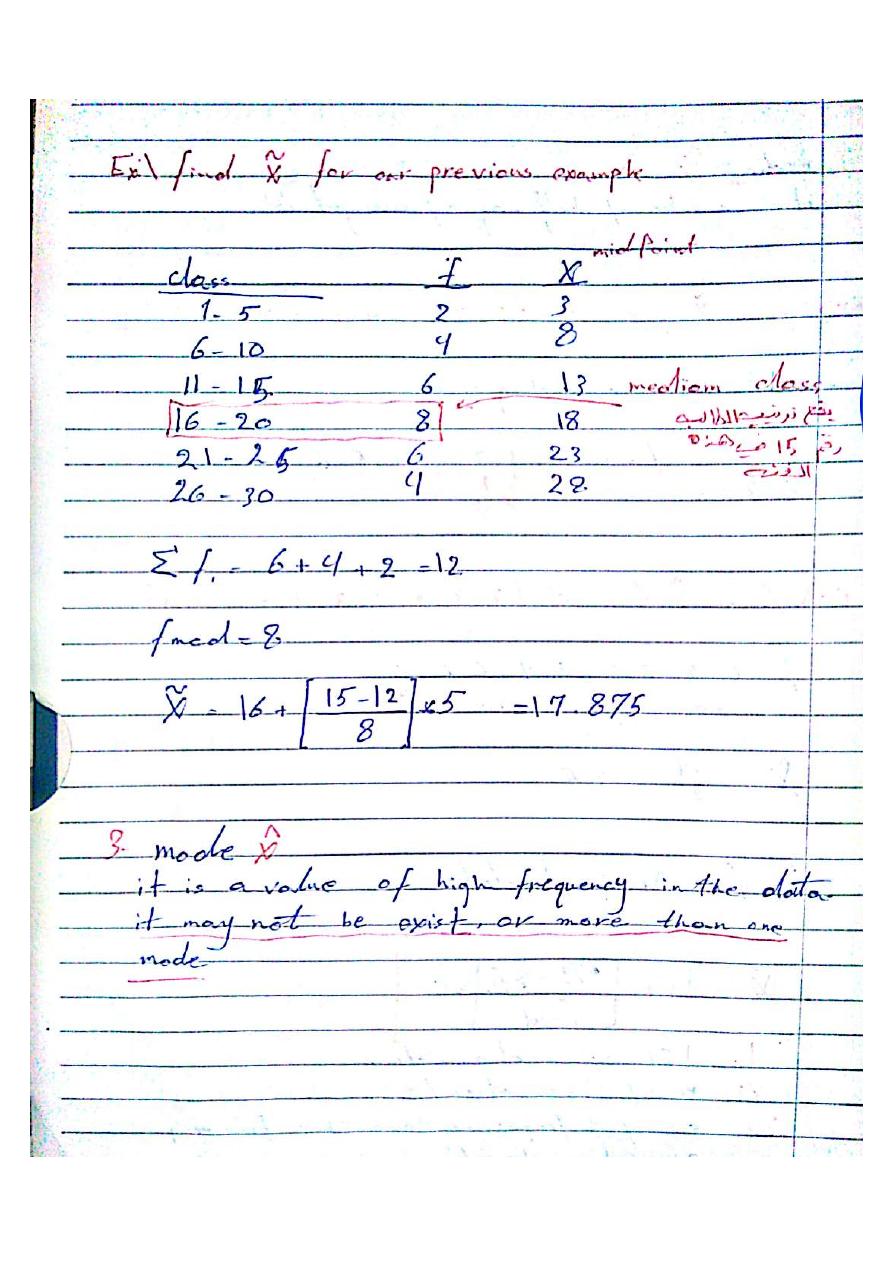 Ex\ find x̃ for our previous example
class f X midpoint
1 - 5 2 3
6 - 10 4 8
11 - 15 6 13 mediam class
16 - 20 8 18 يقع ترتيب الطالب
21 - 25 6 23 رقم 15 في هذه
26 - 30 4 28 الفئة
Σ f. = 6 + 4 + 2 = 12
fmed = 8
x̃ = 16 + [15 - 12 / 8] x 5 = 17.875
3. mode x̂
it is a value of high frequency in the data
it may not be exist, or more than one
mode